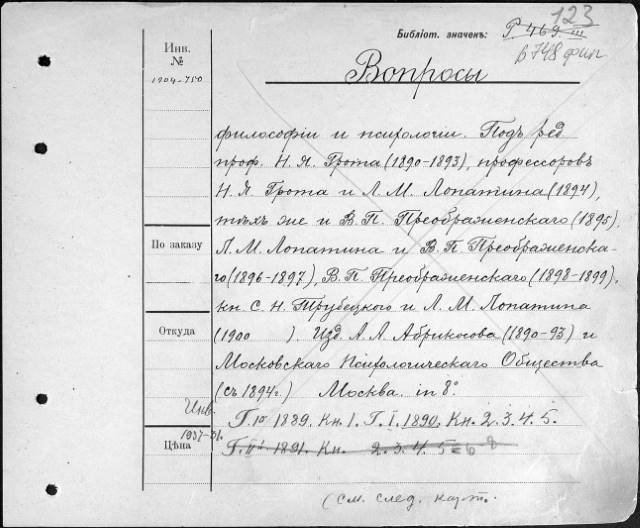 123
Бібліот. значекъ: P 469 III
в 748 фил
Инв.
№
1904-750
Вопросы
философіи и психологіи. Подъ ред
проф. Н. Я. Грота (1890-1893), профессоровъ
Н. Я. Грота и Л. М. Лопатина (1894),
тѣхъ же и В. П. Преображенскаго (1895).
По заказу
Л. М. Лопатина и В. П. Преображенска-
го (1896-1897), В. П. Преображенскаго (1898-1899).
кн. С. Н. Трубецкого и Л. М. Лопатина
Откуда
(1900 ). Изд. А. А. Абрикосова (1890-93) и
Московскаго Психологическаго Общества
(съ 1894 г.) Москва. in 8°.
Инв.
Г. Iй 1889. Кн. 1. Г. I. 1890. Кн. 2. 3. 4. 5.
1937-31.
Цѣна
Г. IIй 1891. Кн. 2. 3. 4. 5 = 6 8
(см. след. карт.